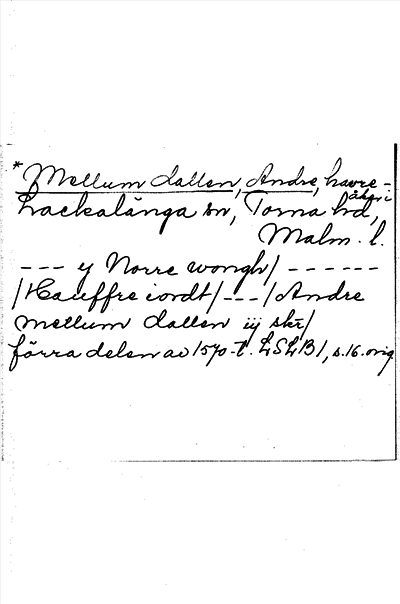 * Mellum dallen, Andre, havre-
åker i
Lackalänga sn, Torna hd,
Malm. l.
--- y Norre wongh/ ------
/Hauffre iordt/---/Andre
mellum dallen iij skr/
förra delen av 1570-t. LSLB1, s.16. orig